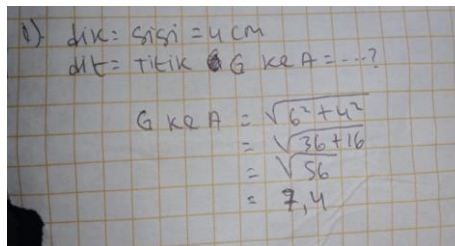 1) dik = sisi = 4 cm
dit = Titik G ke A = ....?
G ke A = √6²+4²
= √36+16
= √56
= 7,4